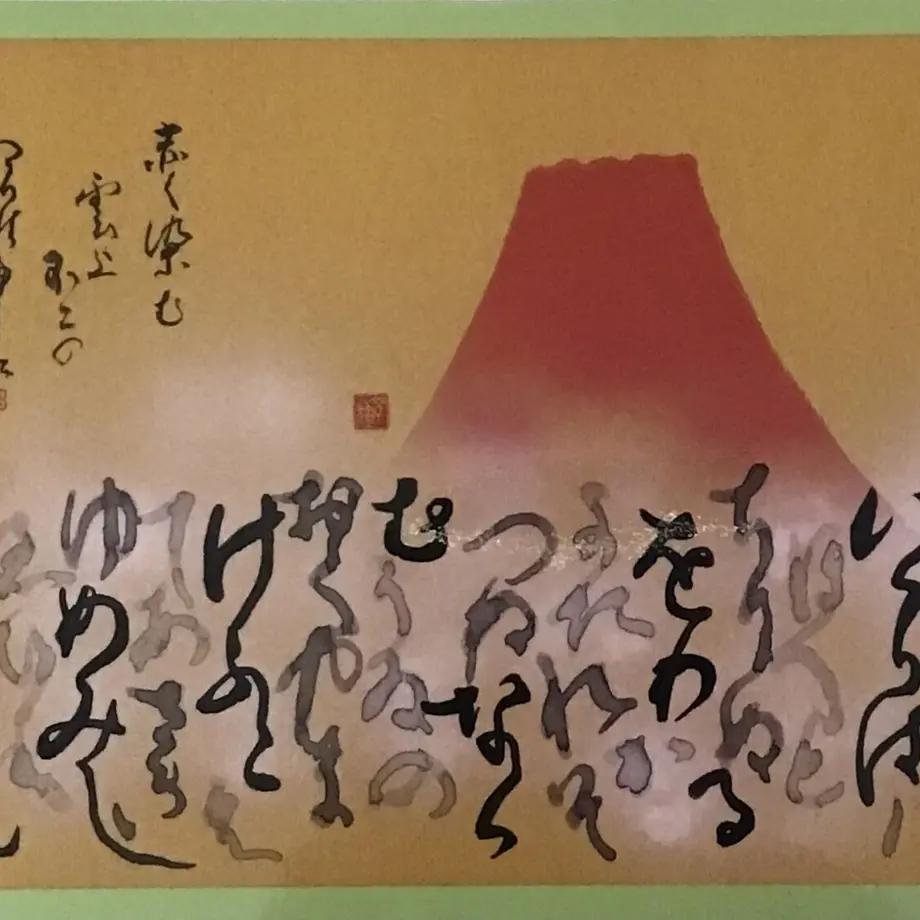 赤く染む
雲上
不二の
いろは
ほへと
ちりぬる
をわか
よたれそ
つねなら
む
うゐの
おくやま
けふこえ
てあさき
ゆめみし